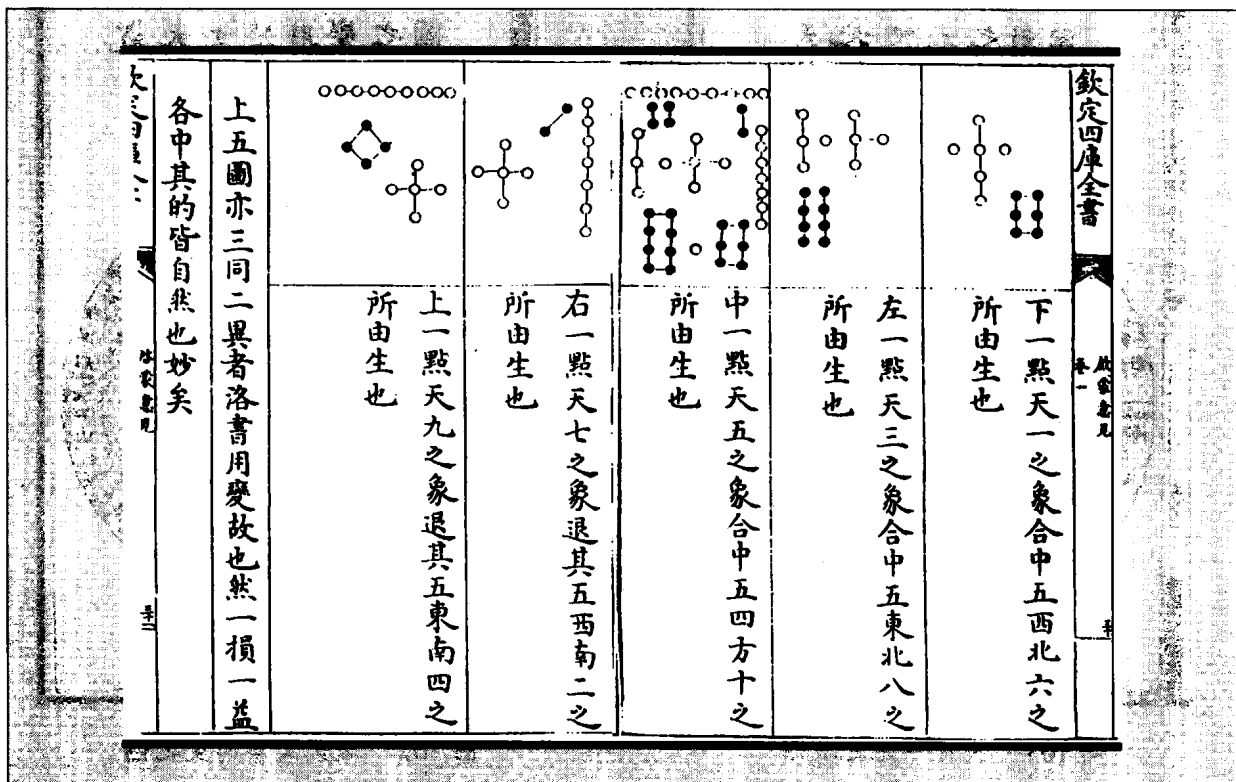 欽定四庫全書
卷一
下一點天一之象合中五西北六之
所由生也
左一點天三之象合中五東北八之
所由生也
中一點天五之象合中五四方十之
所由生也
右一點天七之象退其五西南二之
所由生也
上一點天九之象退其五東南四之
所由生也
上五圖亦三同二異者洛書用變故也然一損一益
各中其的皆自然也妙矣